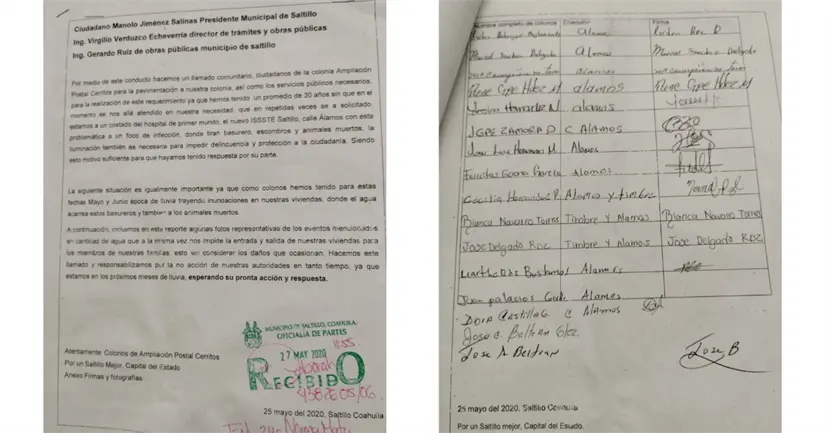 Ciudadano Manolo Jiménez Salinas Presidente Municipal de Saltillo
Ing. Virgilio Verduzco Echeverria director de trámites y obras públicas
Ing. Gerardo Ruiz de obras públicas municipio de saltillo
Por medio de este conducto hacemos un llamado comunitario, ciudadanos de la colonia Ampliación
Postal Cerritos para la pavimentación a nuestra colonia, así como los servicios públicos necesarios,
para la realización de este requerimiento ya que hemos tenido un promedio de 30 años sin que en el
momento se nos allá atendido en nuestra necesidad, que en repetidas veces se a solicitado,
estamos a un costado del hospital de primer mundo, el nuevo ISSSTE Saltillo, calle Álamos con esta
problemática a un foco de infección, donde tiran basurero, escombros y animales muertos, la
iluminación también es necesaria para impedir delincuencia y protección a la ciudadanía. Siendo
esto motivo suficiente para que hayamos tenido respuesta por su parte.
La siguiente situación es igualmente importante ya que como colonos hemos tenido para estas
fechas Mayo y Junio época de lluvia trayendo inundaciones en nuestras viviendas, donde el agua
acarrea estas basureros y también a los animales muertos.
A continuación, incluimos en este reporte algunas fotos representativas de los eventos mencionados
en cantidad de agua que a la misma vez nos impide la entrada y salida de nuestras viviendas para
los miembros de nuestras familias, esto sin considerar los daños que ocasionan. Hacemos este
llamado y responsabilizamos por la no acción de nuestras autoridades en tanto tiempo, ya que
estamos en los próximos meses de lluvia, esperando su pronta acción y respuesta.
MUNICIPIO DE SALTILLO, COAHUILA
OFICIALIA DE PARTES
27 MAY 2020
RECIBIDO
Atentamente Colonos de Ampliación Postal Cerritos
Por un Saltillo Mejor, Capital del Estado
Anexo Firmas y fotografías
25 mayo del 2020, Saltillo Coahuila
Nombre completo de colonos Dirección Firma
Alamo
Manuel Sanchez Delgado Alamos Manuel Sanchez Delgado
alamos
Rene Cipe Hdez M alamos Rene Cipe Hdez M
Hernandez N alamos
JOSE ZAMORA D C Alamos
Juan Luis Hernandez M Alamos
Garcia Alamos
Cecilia Hernandez P. Alamos y timbre
Blanca Navarro Torres Timbre y Alamos Blanca Navarro Torres
Jose Delgado RDZ Timbre y Alamos Jose Delgado RDZ
Martha Bustamos Alamos
Juan palacios Alamos
Dora Castillo G. C Alamos
Jose C. Beltran Glez.
Jose A Beltran Jose B
25 mayo del 2020, Saltillo Coahuila
Por un Saltillo mejor, Capital del Estado.